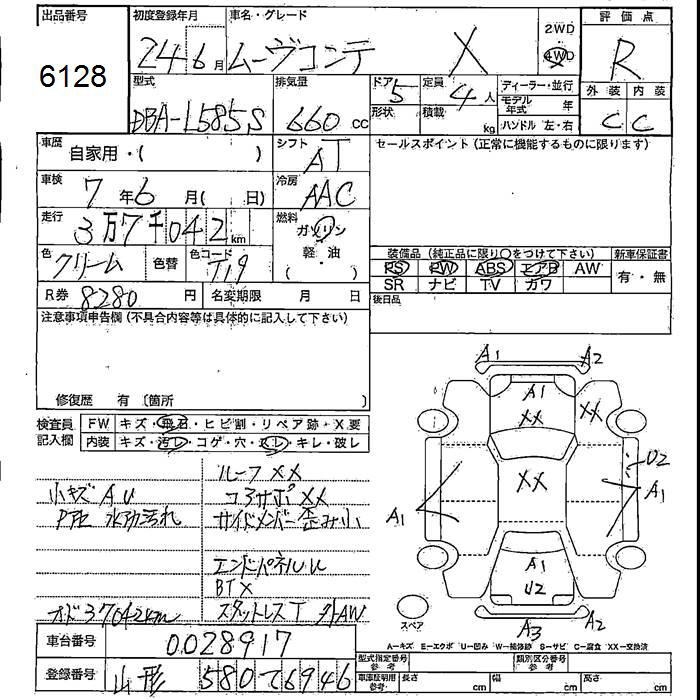 出品番号
6128
初度登録年月
24 6 月
車名・グレード
ムーヴコンテ X
2WD
4WD
評価点
R
外装 内装
C C
型式
DBA-L585S
排気量
660 cc
ドア 5
形状
定員 4 人
積載 kg
ディーラー・並行
モデル年式 年
ハンドル 左・右
車歴
自家用・( )
シフト
AT
セールスポイント (正常に機能するものに限ります)
車検
7 年 6 月( 日)
冷房
AAC
走行
3万7千042 km
燃料
ガソリン
軽・油
( )
色
クリーム
色替
色コード
T19
装備品 (純正品に限り○をつけて下さい)
新車保証書
PS PW ABS エアB AW
有・無
SR ナビ TV カワ
R券 8280 円
名変期限 月 日
後日品
注意事項申告欄 (不具合内容等は具体的に記入して下さい)
修復歴 有 〔箇所 〕
検査員
記入欄
FW キズ・飛石・ヒビ割・リペア跡・X要
内装 キズ・汚レ・コゲ・穴・スレ・キレ・破レ
ルーフ XX
小キズ A U
コアサポ XX
サイドメンバー歪み小
エンドパネル U
BT X
オド37042km
スタットレスT 外AW
車台番号 0028917
登録番号 山形 580 て6946
A1 A2
A1
XX
XX
XX
U2
A1
A1
A1
U2
A3 A2
スペア
A-キズ E-エクボ U-凹み W-補修跡 S-サビ C-腐食 XX-交換済
型式指定番号
参考
類別区分番号
参考
車庫証明用
参考
長さ cm
幅 cm
高さ cm